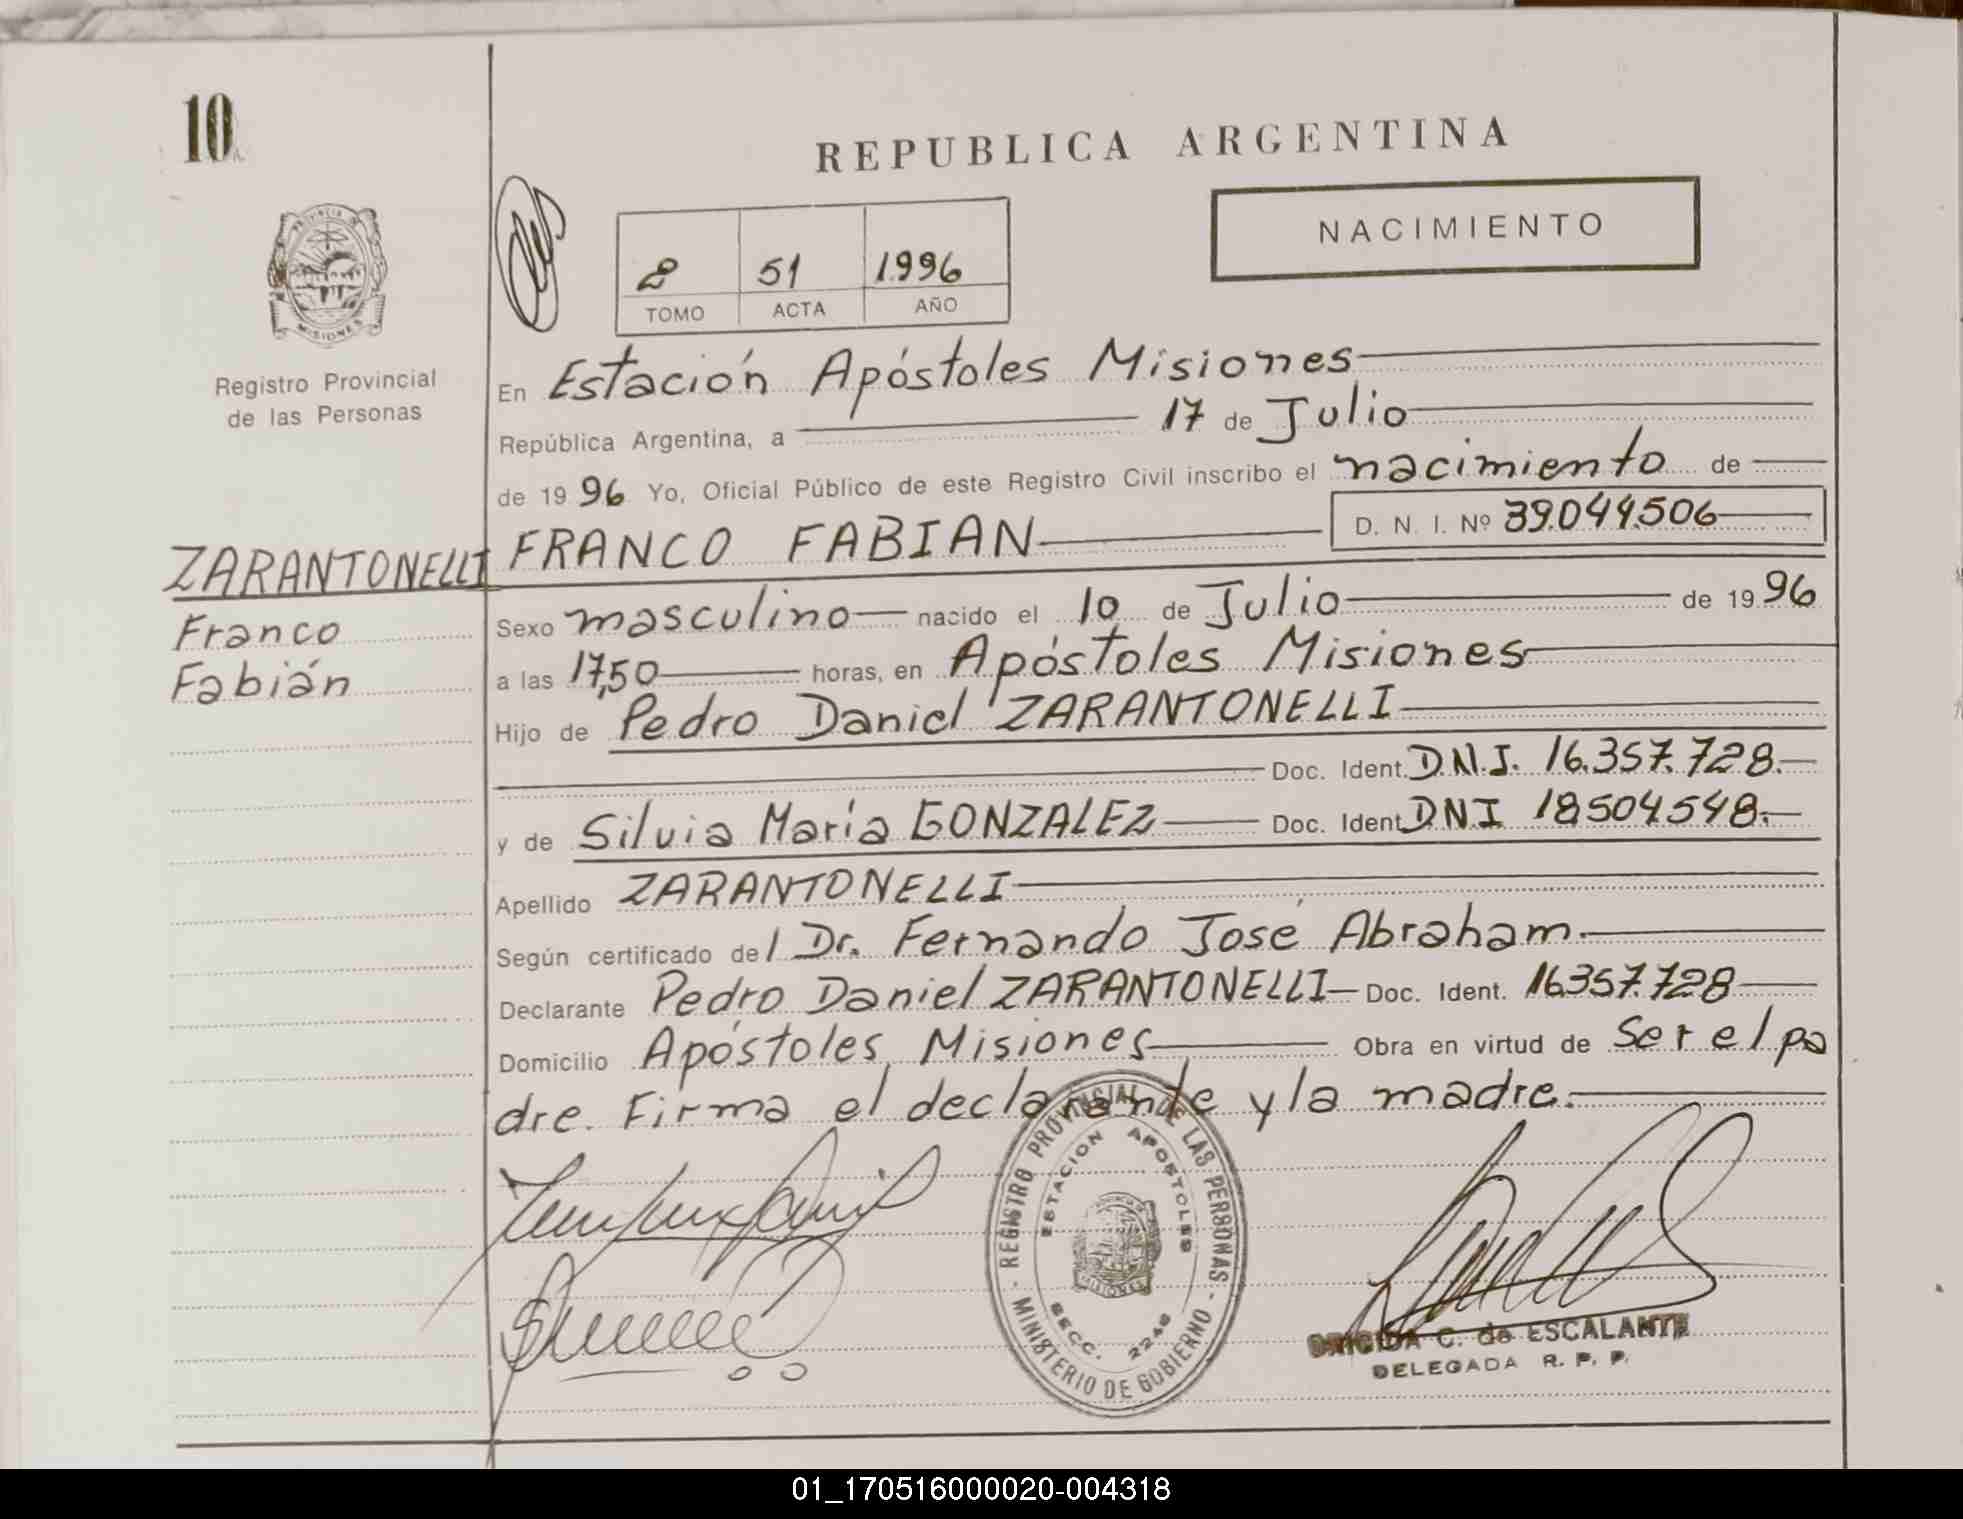 10
REPUBLICA ARGENTINA
NACIMIENTO
PROVINCIA DE
MISIONES
Registro Provincial
de las Personas
2 51 1996
TOMO ACTA AÑO
En Estación Apóstoles Misiones
República Argentina, a 17 de Julio
de 19 96 Yo, Oficial Público de este Registro Civil inscribo el nacimiento de
ZARANTONELLI FRANCO FABIAN D. N. I. Nº 39.044.506
Franco
Fabián
Sexo masculino nacido el 10 de Julio de 19 96
a las 17,50 horas, en Apóstoles Misiones
Hijo de Pedro Daniel ZARANTONELLI
Doc. Ident. D.N.I. 16.357.728.
y de Silvia María GONZALEZ Doc. Ident. DNI 18.504.548.
Apellido ZARANTONELLI
Según certificado del Dr. Fernando José Abraham.
Declarante Pedro Daniel ZARANTONELLI Doc. Ident. 16.357.728
Domicilio Apóstoles Misiones Obra en virtud de ser el pa
dre. Firma el declarante y la madre.
REGISTRO PROVINCIAL DE LAS PERSONAS
MINISTERIO DE GOBIERNO
ESTACION APOSTOLES
SECC. 2246
MISIONES
C. de ESCALANTE
DELEGADA R. P. P.
01_170516000020-004318